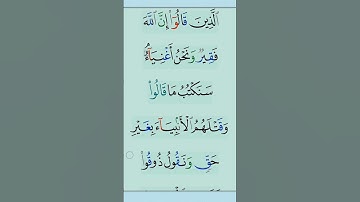 ٱلَّذِينَ قَالُوٓا۟ إِنَّ ٱللَّهَ
فَقِيرٌ وَنَحْنُ أَغْنِيَآءُ
سَنَكْتُبُ مَا قَالُوا۟
وَقَتْلَهُمُ ٱلْأَنۢبِيَآءَ بِغَيْرِ
حَقٍّ وَنَقُولُ ذُوقُوا۟